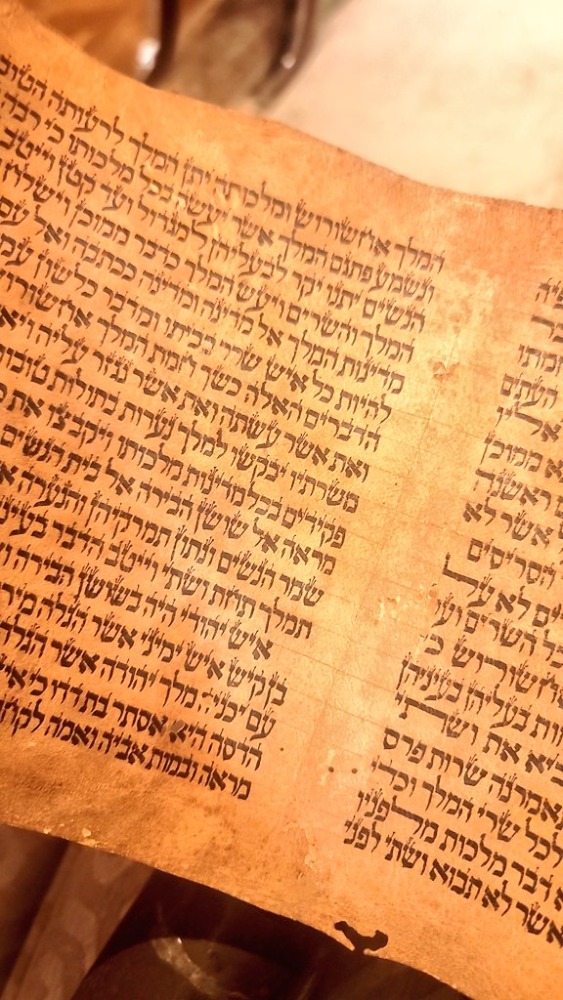 וחמתו
העתים
ממוכן
ראשנה
אשר לא
הסריסים
לא על
השרים ועל
אחשורוש כי
בעליהן בעיניהן
את ושתי
תאמרנה שרות פרס
לכל שרי המלך וכדי
דבר מלכות מלפניו
אשר לא תבוא ושתי לפני
המלך אחשורוש ומלכותה יתן המלך לרעותה
ונשמע פתגם המלך אשר יעשה בכל מלכותו כי רבה
הנשים יתנו יקר לבעליהן למגדול ועד קטן וייטב
המלך והשרים ויעש המלך כדבר ממוכן
מדינות המלך אל מדינה ומדינה ככתבה ואל עם
להיות כל איש שרר בביתו ומדבר כלשון
הדברים האלה כשך חמת המלך
ואת אשר עשתה ואת אשר נגזר עליה
משרתיו יבקשו למלך נערות בתולות
פקידים בכל מדינות מלכותו ויקבצו את
מראה אל שושן הבירה אל בית הנשים
שמר הנשים ונתון תמרקיהן והנערה
תמלך תחת ושתי וייטב הדבר
איש יהודי היה בשושן הבירה
בן קיש איש ימיני אשר הגלה
עם יכניה מלך יהודה אשר
הדסה היא אסתר בת דדו כי
מראה ובמות אביה ואמה